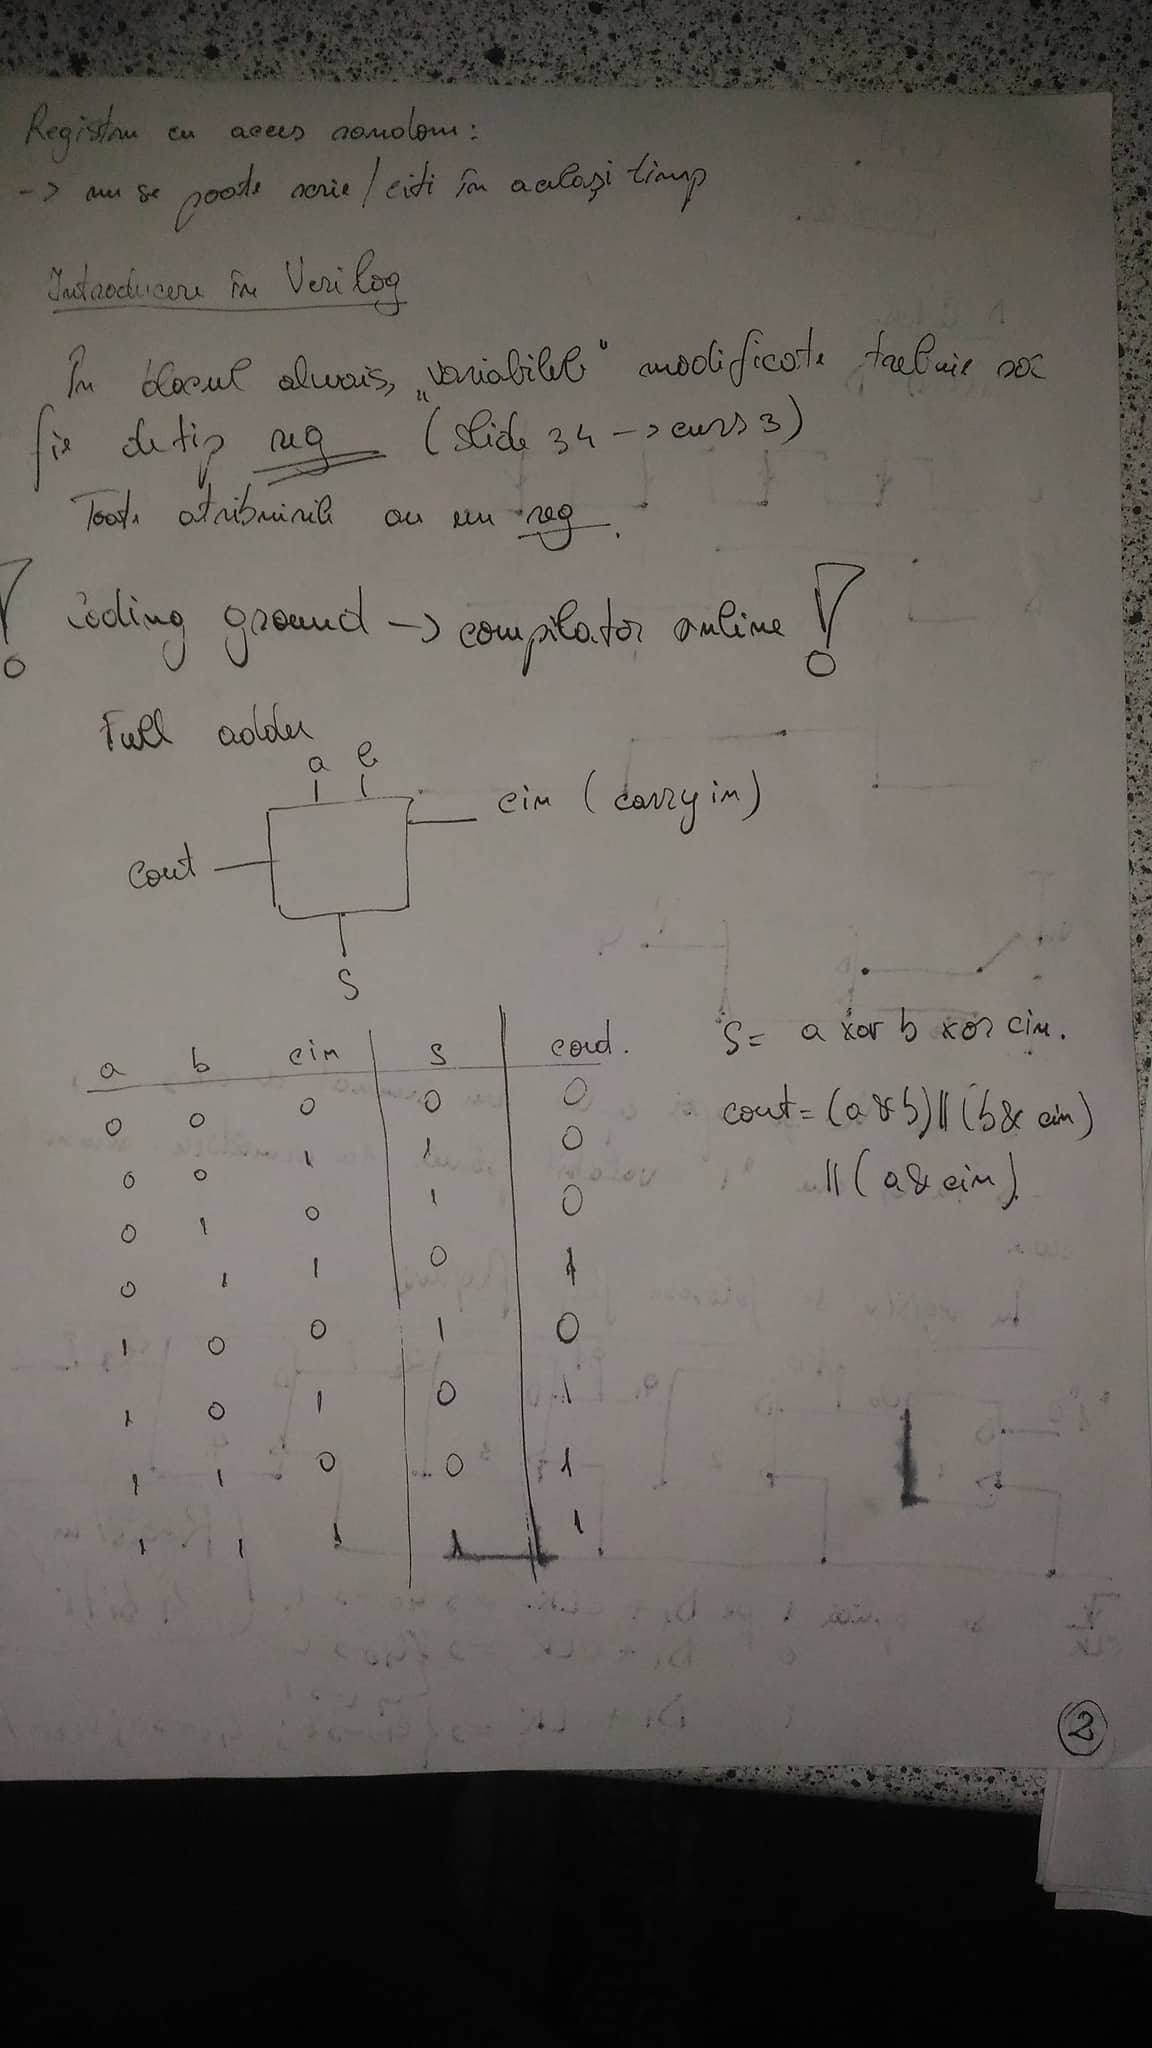 Registru cu acces random:
-> nu se poate scrie/citi în același timp
Introducere în Verilog
În blocul always, „variabilele" modificate trebuie să
fie de tip reg (slide 34 -> curs 3)
Toate atribuirile au un reg.
! Coding ground -> compilator online !
Full adder
a b
cin (carry in)
cout
S
a b cin s cout.
0 0 0 0 0
0 0 1 1 0
0 1 0 1 0
0 1 1 0 1
1 0 0 1 0
1 0 1 0 1
1 1 0 0 1
1 1 1 1 1
S= a xor b xor cin.
cout=(a & b)||(b& cin)
||(a& cin)
2